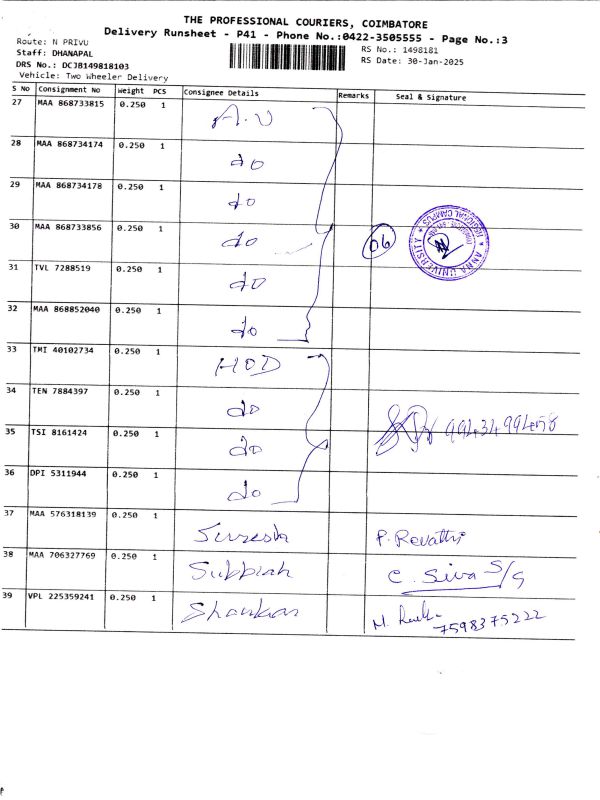 THE PROFESSIONAL COURIERS, COIMBATORE
Delivery Runsheet - P41 - Phone No.:0422-3505555 - Page No.:3
Route: N PRIVU
RS No.: 1498181
Staff: DHANAPAL
RS Date: 30-Jan-2025
DRS No.: DCJB149818103
Vehicle: Two Wheeler Delivery
S No Consignment No Weight PCS Consignee Details Remarks Seal & Signature
27 MAA 868733815 0.250 1 A.U
28 MAA 868734174 0.250 1 do
29 MAA 868734178 0.250 1 do
30 MAA 868733856 0.250 1 do 06
ANNA UNIVERSITY * REGIONAL CAMPUS *
31 TVL 7288519 0.250 1 do
32 MAA 868852040 0.250 1 do
33 TMI 40102734 0.250 1 HOD
34 TEN 7884397 0.250 1 do
35 TSI 8161424 0.250 1 do 9943499458
36 DPI 5311944 0.250 1 do
37 MAA 576318139 0.250 1 Suresh P. Revathi
38 MAA 706327769 0.250 1 Subbiah C. Siva S/G
39 VPL 225359241 0.250 1 Shankar M.
7598375222